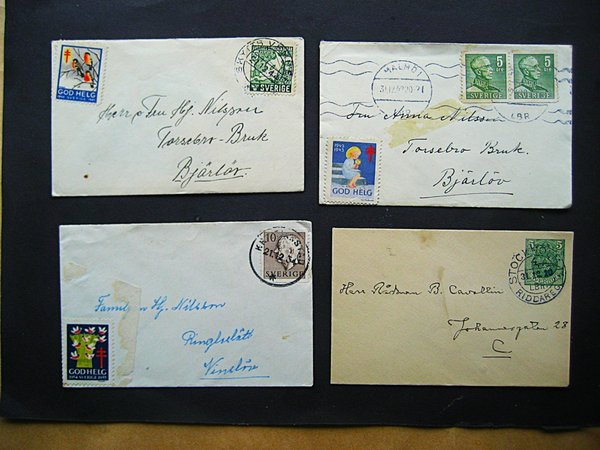 GOD HELG
SVERIGE
Herr o Fru Hj. Nilsson
Torsebro-Bruk
Bjärlöv.
MALMÖ 1
5 ÖRE
SVERIGE
5 ÖRE
SVERIGE
Fru Anna Nilsson
Torsebro Bruk.
Bjärlöv
1942
1943
GOD HELG
10
SVERIGE
21.12.
Familjen Hj. Nilsson
Ringlslätt
Vinslöv
GOD HELG
1954 SVERIGE 1955
5
31.12.
RIDDAREG
Herr Rådman B. Cavallin
Johannesgatan 28
C